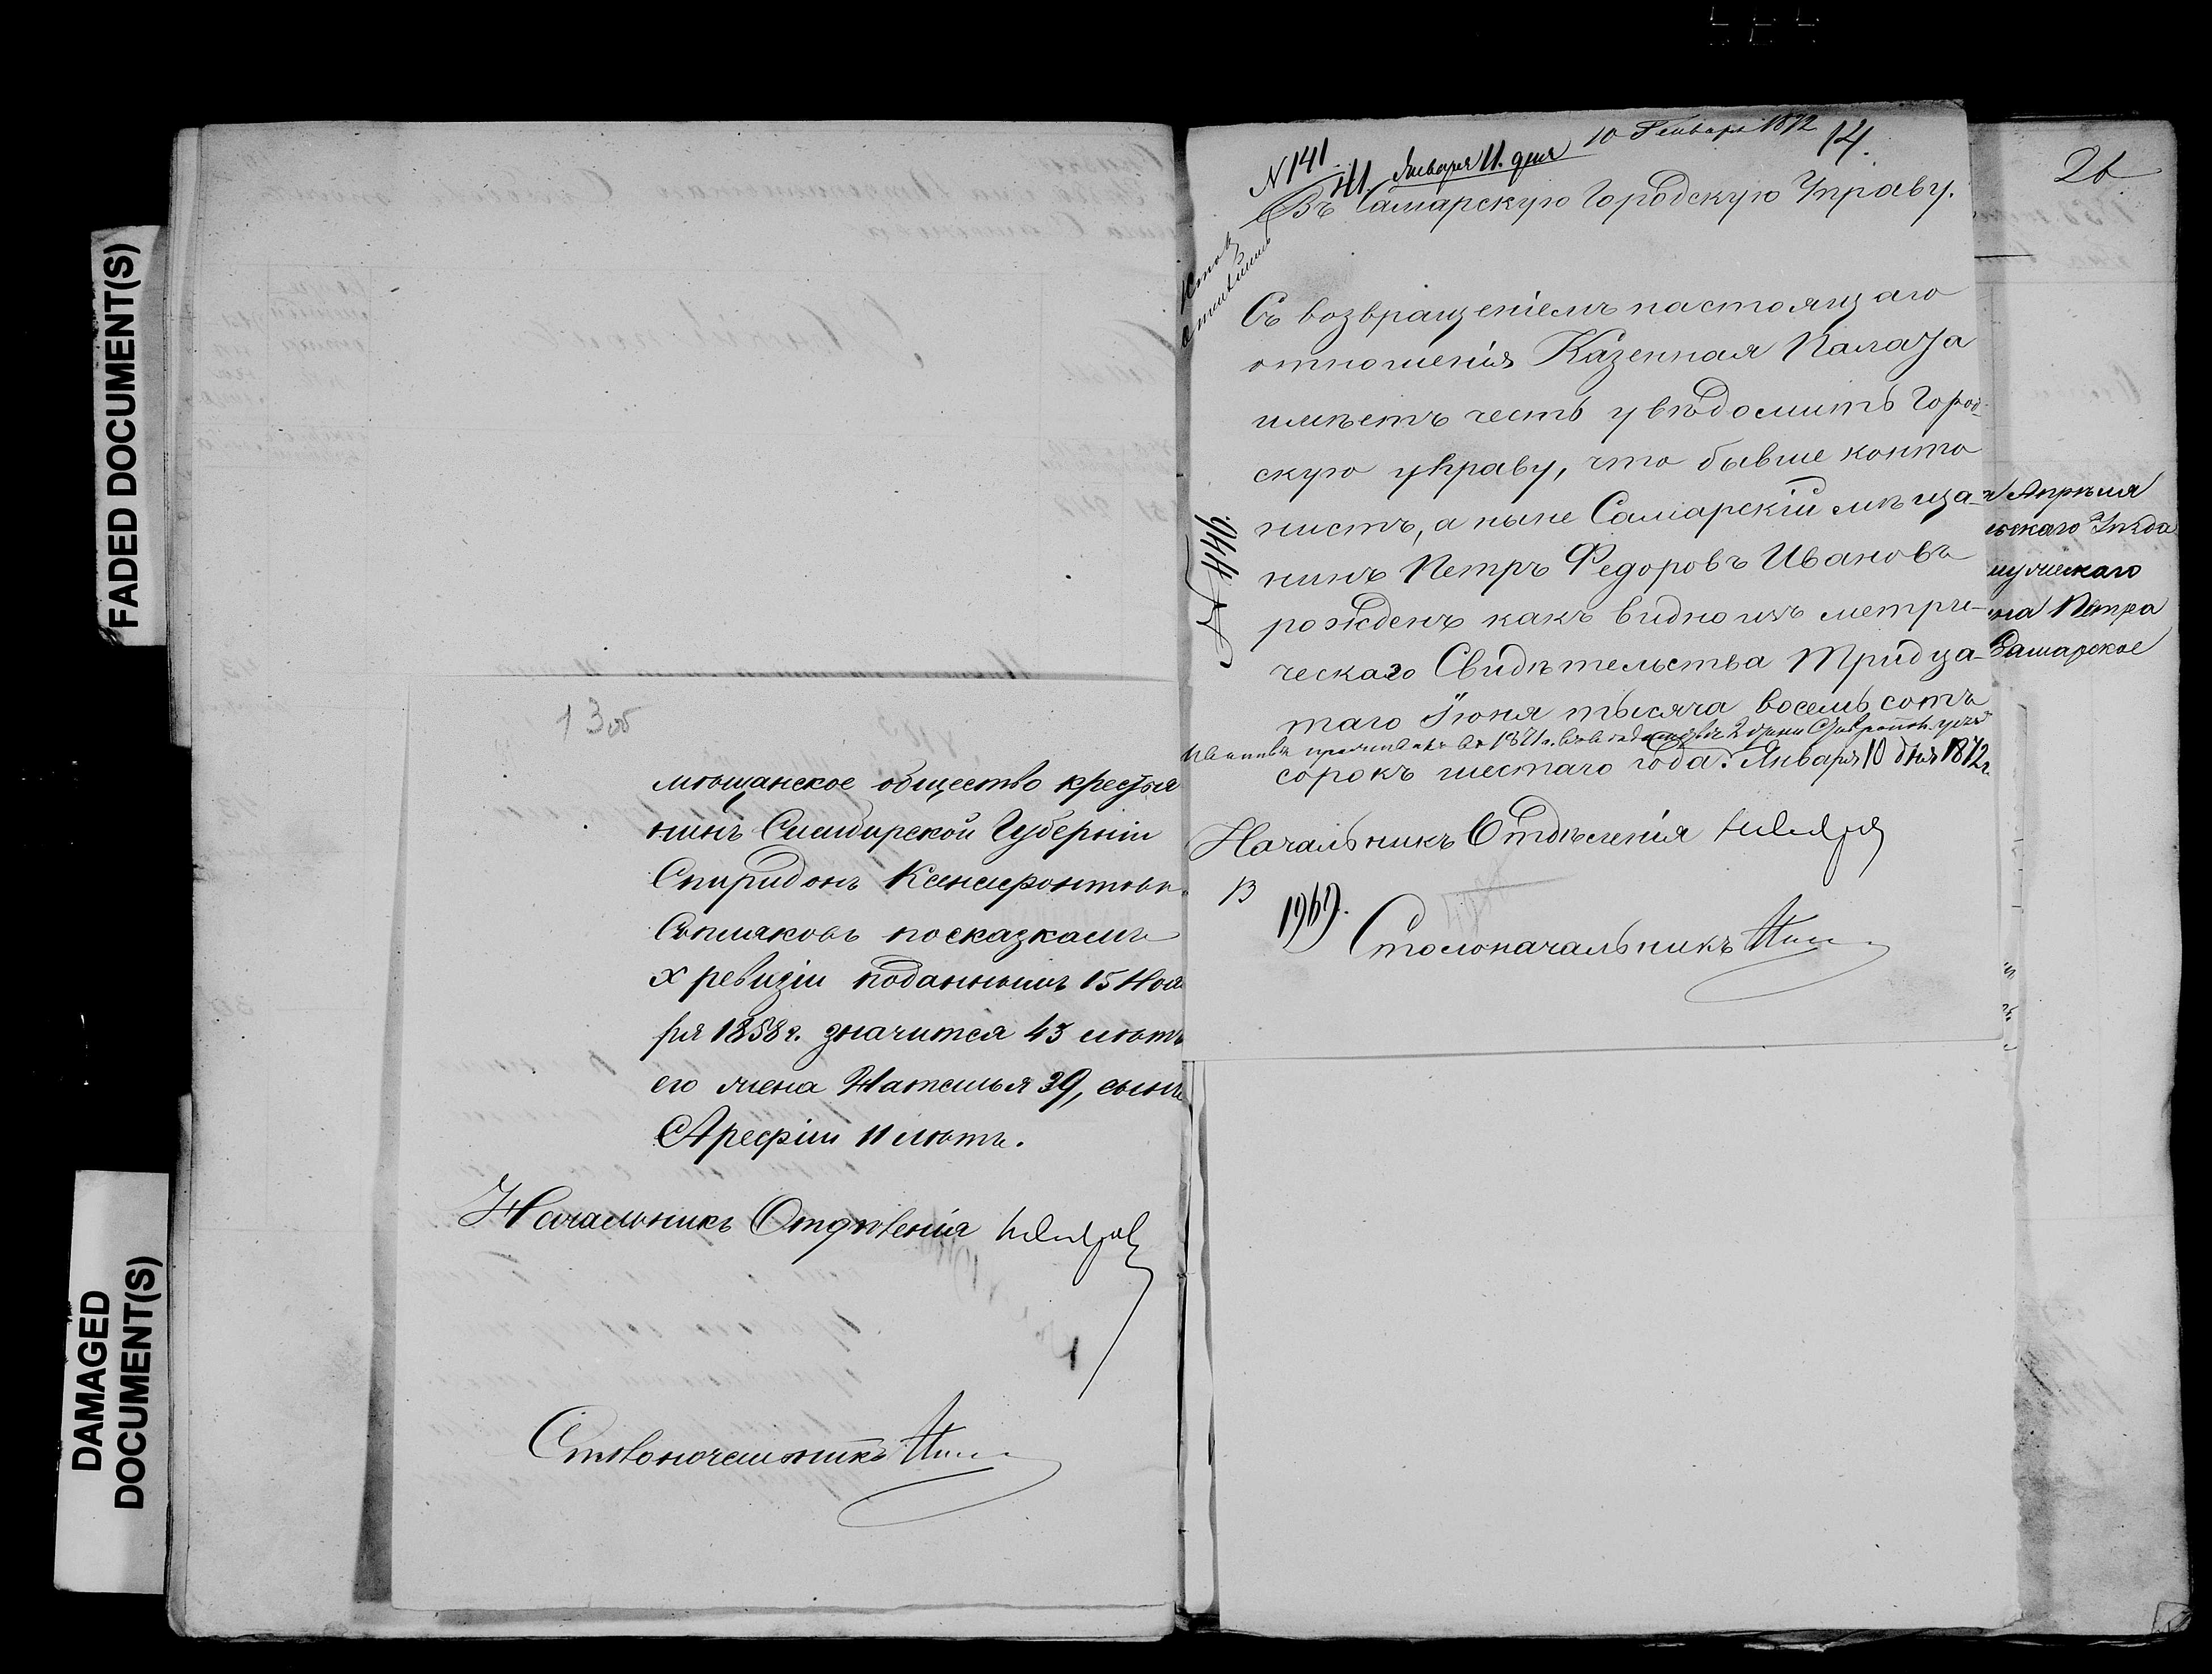 FADED DOCUMENT(S)
DAMAGED
DOCUMENT(S)
13 об
мѣщанское общество крестья
нинъ Симбирской Губерніи
Спиридонъ Ксенофонтовъ
посказкамъ
X ревизіи поданнымъ 15 Нояб
ря 1858 г. значится 43 лѣтъ
его жена Наталья 39, сынъ
Арефій 11 лѣтъ.
Начальникъ Отдѣленія
Столоначальникъ
N 141
Января 11. дня
10 Генваря 1872
14.
Въ Самарскую Городскую Управу.
Съ возвращеніемъ настоящаго
отношенія Казенная Палата
имѣетъ честь увѣдомить Город-
скую управу, что бывше конто
нистъ, а ныне Самарскій мѣща-
нинъ Петръ Федоровъ Ивановъ
рожденъ какъ видно изъ метри-
ческаго Свидѣтельства Тридца-
таго Іюня тысяча восемь сотъ
сорокъ шестаго года. Января 10 дня 1872 г.
Начальникъ Отдѣленія
В
1969.
Столоначальникъ
N 944
26
Апрѣля
скаго Уѣзда
Петра
Самарское